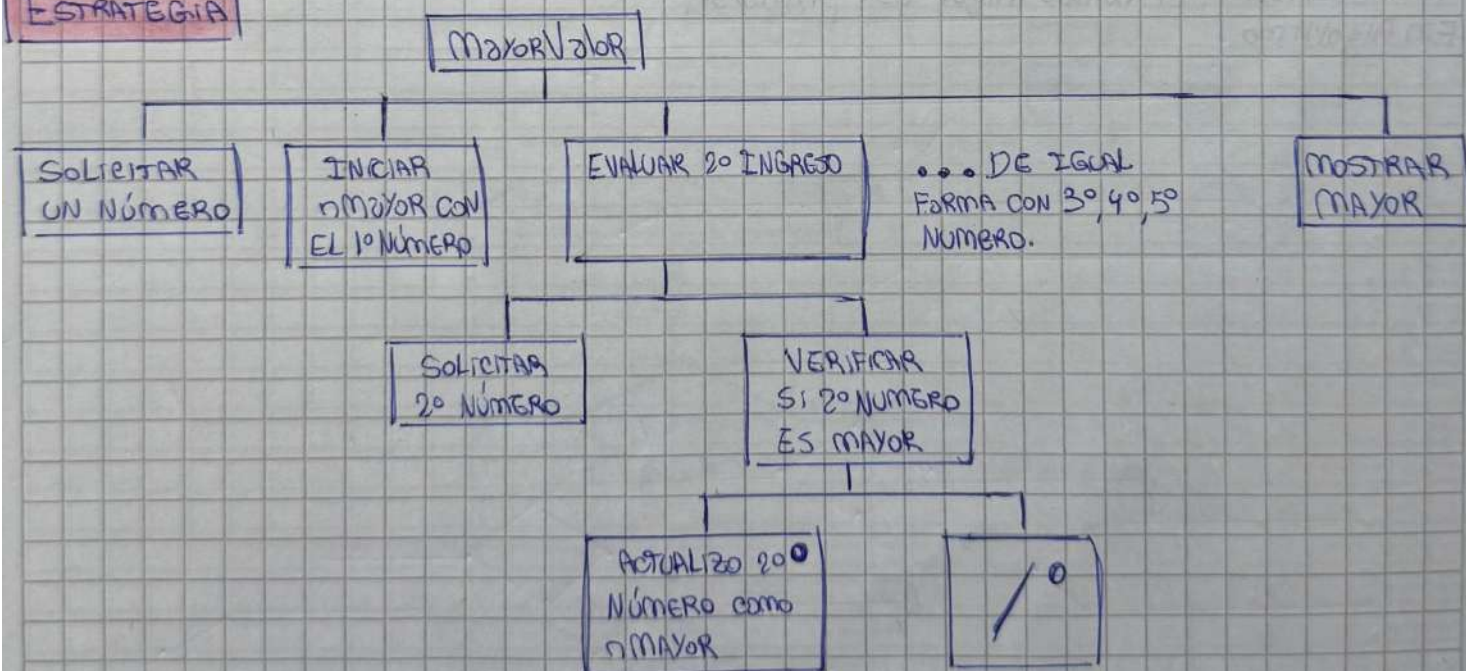 ESTRATEGIA
MayorValor
SOLICITAR
UN NÚMERO
INICIAR
nMayor CON
EL 1º NÚMERO
EVALUAR 2º INGRESO
... DE IGUAL
FORMA CON 3º, 4º, 5º
NUMERO.
MOSTRAR
MAYOR
SOLICITAR
2º NÚMERO
VERIFICAR
SI 2º NUMERO
ES MAYOR
ACTUALIZO 2º
NÚMERO COMO
nMAYOR